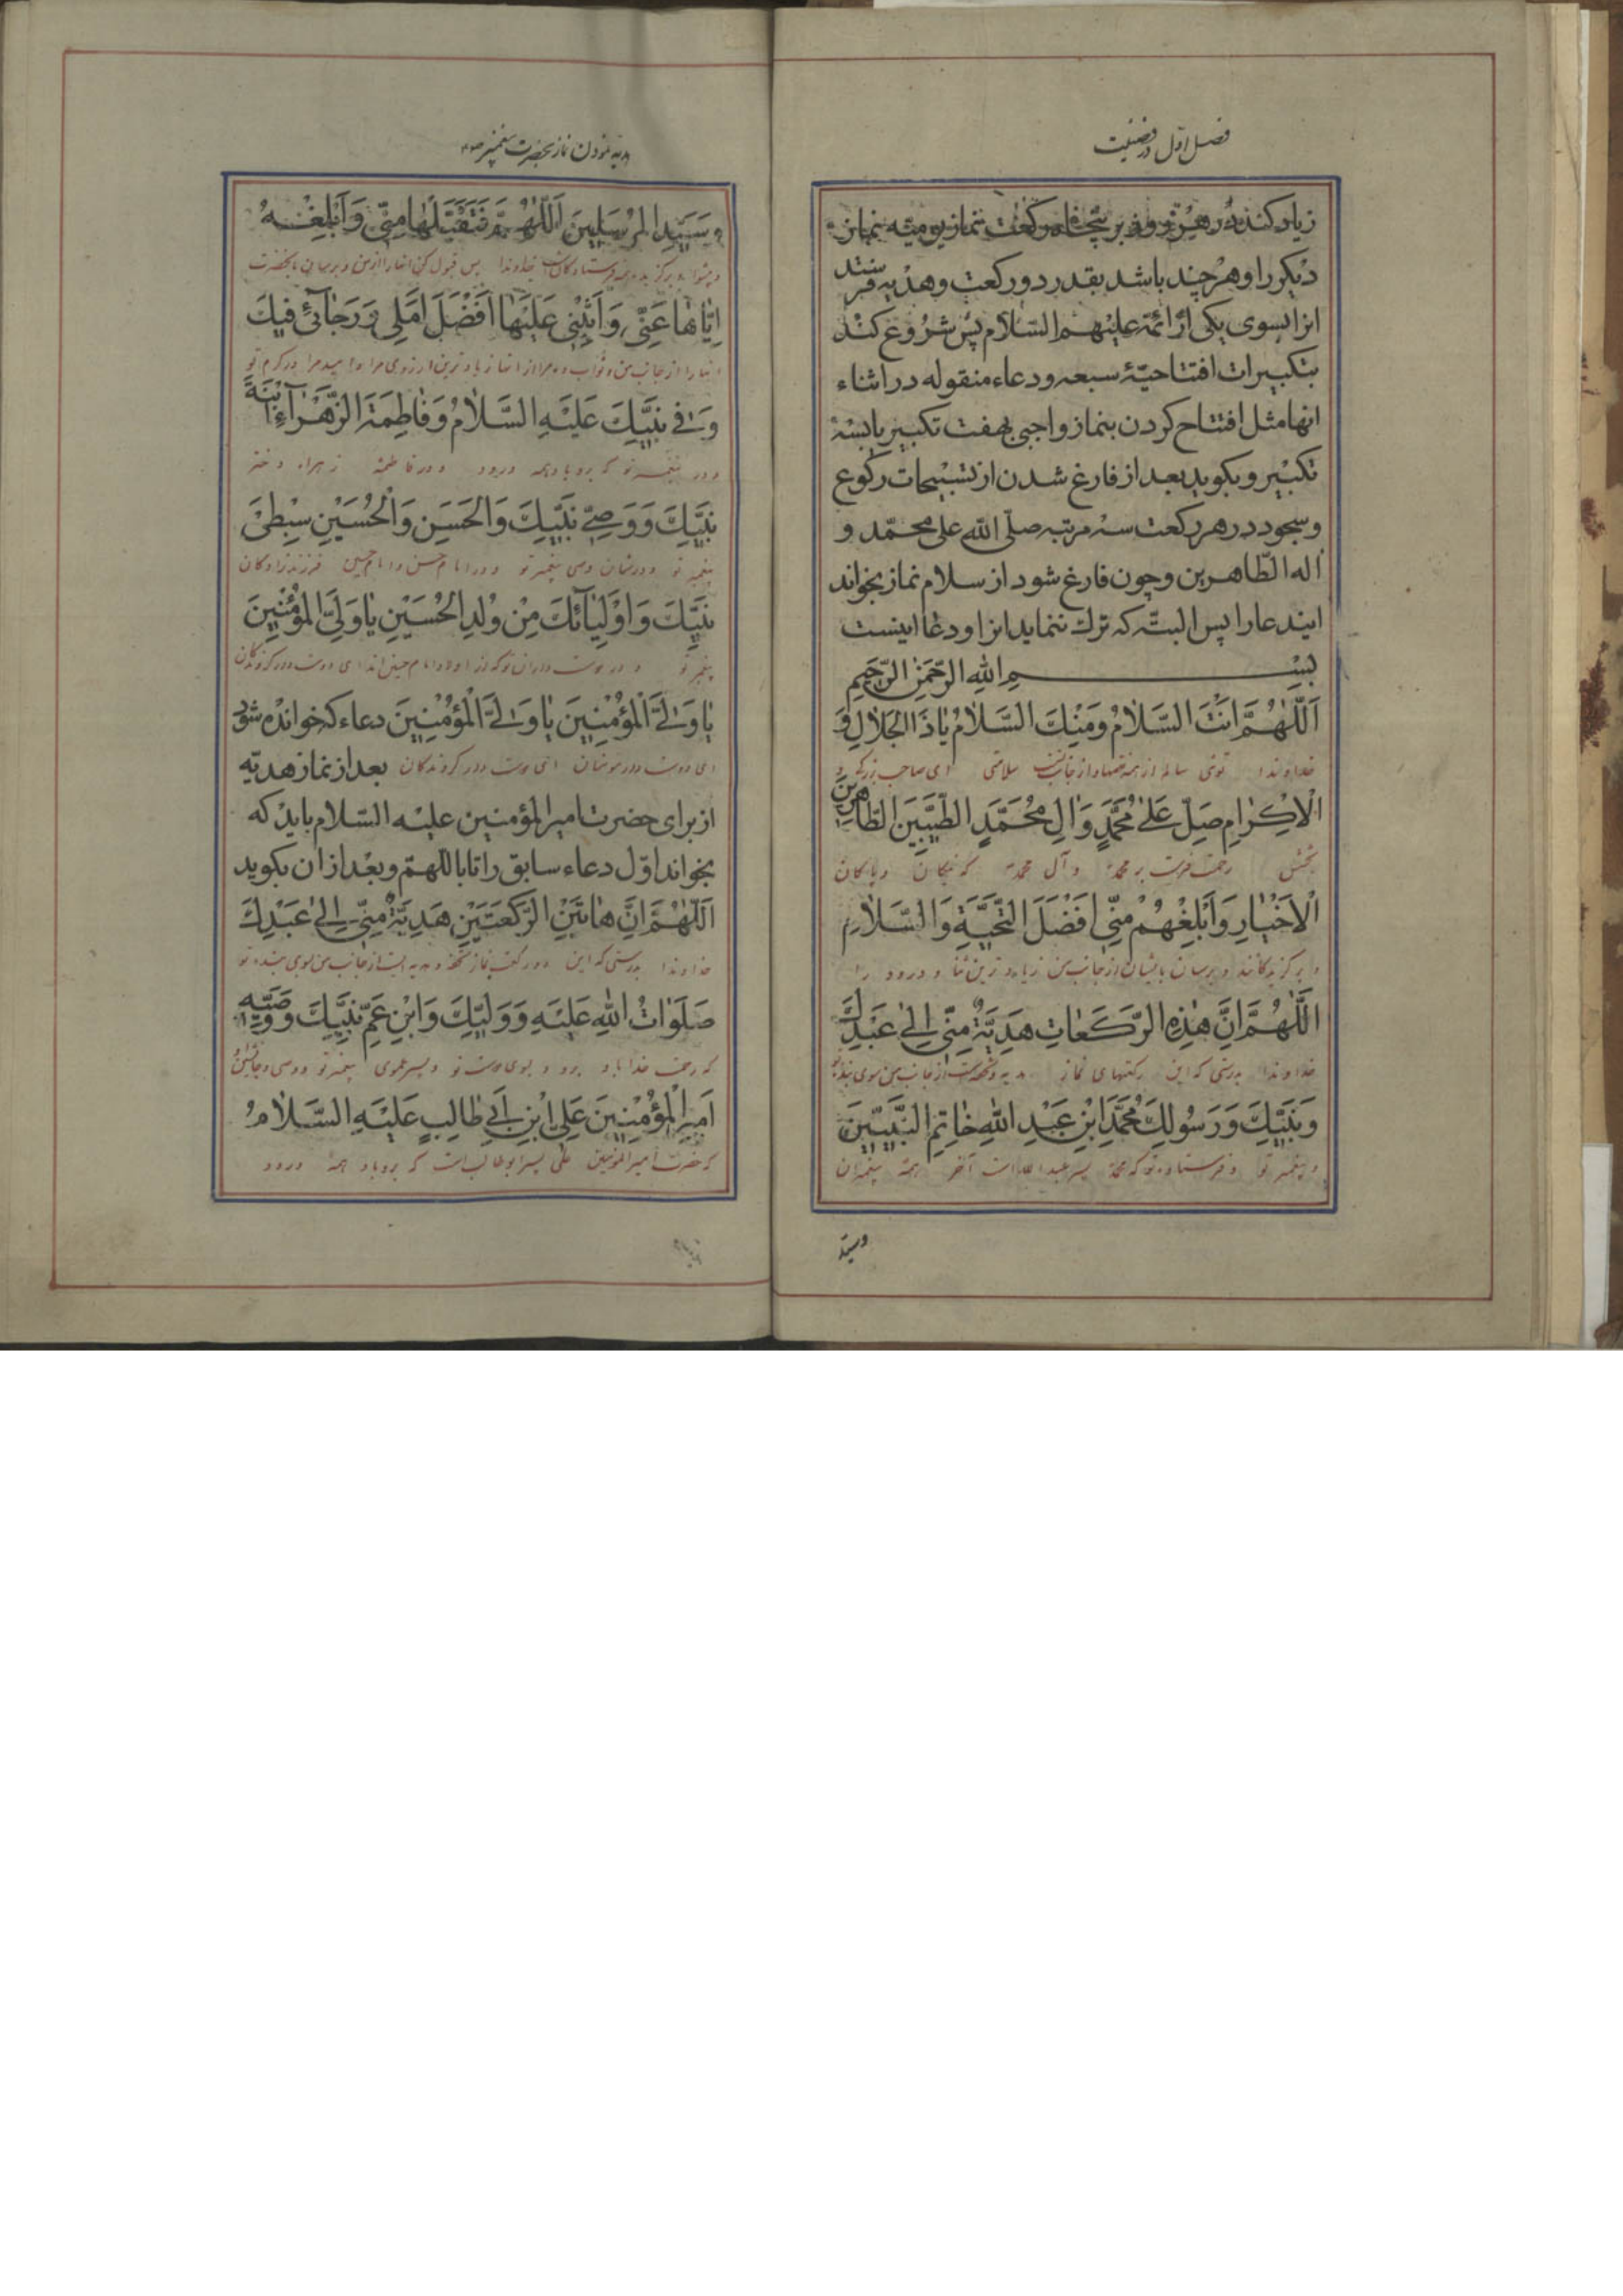 فصل اول در فضیلت
زیاد کند در هر روز بر پنجاه رکعت نماز یومیه نماز
دیکر را و هر چند باشد بقدر دو رکعت و هدیه فرستد
انرا بسوی یکی از ائمة علیهم السلام پس شروع کند
بتکبیرات افتتاحیّهٔ سبعه و دعاء منقوله در اثناء
انها مثل افتتاح کردن بنماز واجبی بهفت تکبیر یا بسه
تکبیر و بکوید بعد از فارغ شدن از تسبیحات رکوع
و سجود در هر رکعت سه مرتبه صلّی الله علی محمّد و
اله الطّاهرین و چون فارغ شود از سلام نماز بخواند
ایندعا را پس البتّه که ترك ننماید انرا و دعا اینست
بسم الله الرّحمن الرّحیم
اَللّٰهُمَّ اَنْتَ السَّلَامُ وَمِنْكَ السَّلَامُ یَاذَا الْجَلَالِ وَ
خداوندا توئی سالم از همه نقصها و از جانب تست سلامتی ای صاحب بزرکی و
الْاِكْرَامِ صَلِّ عَلٰی مُحَمَّدٍ وَاٰلِ مُحَمَّدٍ الطَّیِّبِینَ الطَّاهِرِینَ
بخشش رحمت فرست بر محمّد و آل محمّد که نیکان و پاکان
الْاَخْیَارِ وَاَبْلِغْهُمْ مِنِّی اَفْضَلَ التَّحِیَّةِ وَالسَّلَامِ
و برکزیدکانند و برسان بایشان از جانب من زیادترین ثنا و درود را
اَللّٰهُمَّ اِنَّ هٰذِهِ الرَّكَعَاتِ هَدِیَّةٌ مِنِّی اِلٰی عَبْدِكَ
خداوندا بدرستی که این رکعتهای نماز هدیه و تحفه است از جانب من بسوی بنده تو
وَنَبِیِّكَ وَرَسُولِكَ مُحَمَّدِ ابْنِ عَبْدِ اللهِ خَاتِمِ النَّبِیِّینَ
و پیغمبر تو و فرستاده تو که محمّد پسر عبد الله است آخر همهٔ پیغمبران
وسیّد
هدیه نمودن نماز بحضرت پیغمبر ص
وَسَیِّدِ الْمُرْسَلِینَ اَللّٰهُمَّ فَتَقَبَّلْهَا مِنِّی وَاَبْلِغْهُ
و پیشوا و برکزیده همه فرستادکان خداوندا پس قبول کن انها را از من و برسان بانحضرت
اِیَّاهَا عَنِّی وَاَثِبْنِی عَلَیْهَا اَفْضَلَ اَمَلِی وَرَجَائِی فِیكَ
انها را از جانب من و ثواب ده مرا از انها زیادترین ارزوی مرا و امید مرا در کرم تو
وَفِی نَبِیِّكَ عَلَیْهِ السَّلَامُ وَفَاطِمَةَ الزَّهْرَاءِ ابْنَةِ
و در پیغمبر تو که بر او باد همه درود و در فاطمه زهراء دختر
نَبِیِّكَ وَوَصِیِّ نَبِیِّكَ وَالْحَسَنِ وَالْحُسَیْنِ سِبْطَیْ
پیغمبر تو و در شان وصی پیغمبر تو و در امام حسن و امام حسین فرزندزادکان
نَبِیِّكَ وَاَوْلِیَائِكَ مِنْ وُلْدِ الْحُسَیْنِ یَا وَلِیَّ الْمُؤْمِنِینَ
پیغمبر تو و در دوست داران تو که از اولاد امام حسین اند ای دوست دار کروندکان
یَا وَلِیَّ الْمُؤْمِنِینَ یَا وَلِیَّ الْمُؤْمِنِینَ دعاء که خوانده شود
ای دوست دار مومنان ای دوست دار کروندکان بعد از نماز هدیّه
از برای حضرت امیر المؤمنین علیه السّلام باید که
بخواند اوّل دعاء سابق را تا باللهمّ و بعد از ان بکوید
اَللّٰهُمَّ اِنَّ هَاتَیْنِ الرَّكْعَتَیْنِ هَدِیَّةٌ مِنِّی اِلٰی عَبْدِكَ
خداوندا بدرستی که این دو رکعت نماز تحفه و هدیه است از جانب من بسوی بنده تو
صَلَوَاتُ اللهِ عَلَیْهِ وَوَلِیِّكَ وَابْنِ عَمِّ نَبِیِّكَ وَوَصِیِّهِ
که رحمت خدا باد بر او و بسوی دوست تو و پسر عموی پیغمبر تو و وصی و جانشین او
اَمِیرِ الْمُؤْمِنِینَ عَلِیِّ ابْنِ اَبِی طَالِبٍ عَلَیْهِ السَّلَامُ
که حضرت امیر المؤمنین علی پسر ابو طالب است که بر او باد همهٔ درود